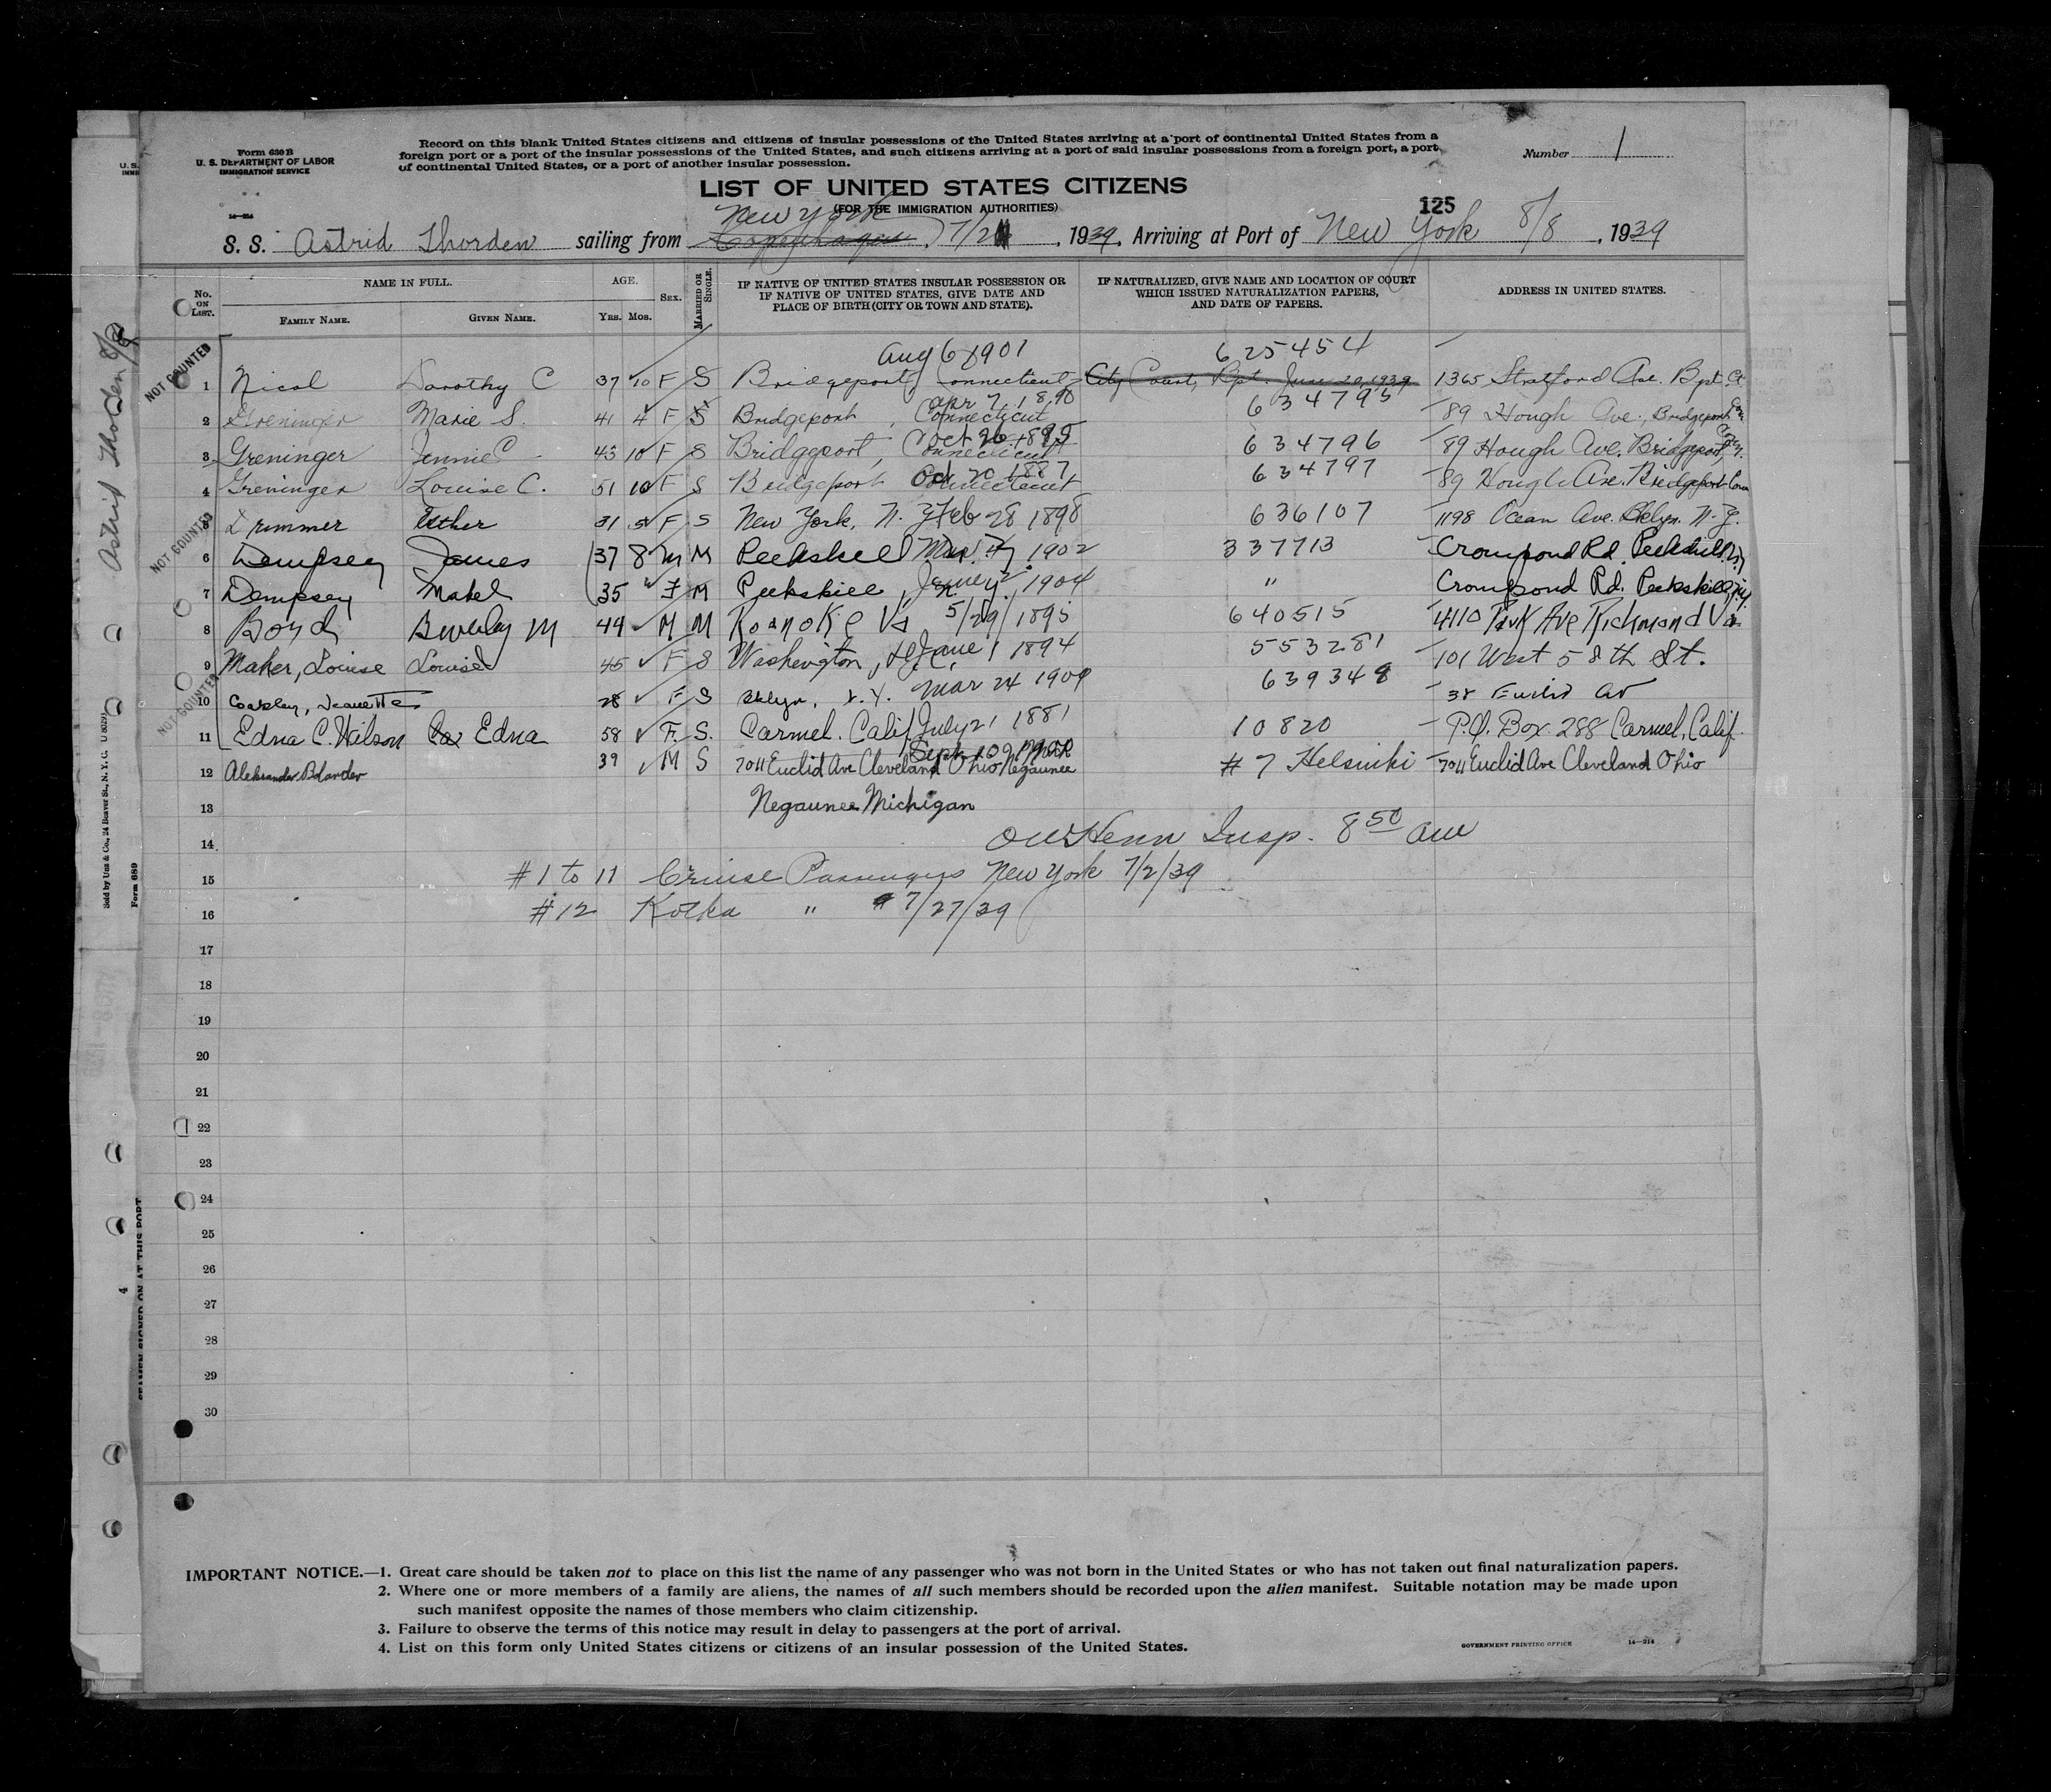 Form 630 B
U. S. DEPARTMENT OF LABOR
IMMIGRATION SERVICE
14—214
Record on this blank United States citizens and citizens of insular possessions of the United States arriving at a port of continental United States from a
foreign port or a port of the insular possessions of the United States, and such citizens arriving at a port of said insular possessions from a foreign port, a port
of continental United States, or a port of another insular possession.
Number 1
LIST OF UNITED STATES CITIZENS
(FOR THE IMMIGRATION AUTHORITIES)
125
New York
S. S. Astrid Thorden sailing from Copenhagen, 7/2, 1939, Arriving at Port of New York 8/8, 1939
No. ON LIST.
NAME IN FULL.
FAMILY NAME. GIVEN NAME.
AGE.
YRS. MOS.
SEX.
MARRIED OR SINGLE.
IF NATIVE OF UNITED STATES INSULAR POSSESSION OR
IF NATIVE OF UNITED STATES, GIVE DATE AND
PLACE OF BIRTH (CITY OR TOWN AND STATE).
IF NATURALIZED, GIVE NAME AND LOCATION OF COURT
WHICH ISSUED NATURALIZATION PAPERS,
AND DATE OF PAPERS.
ADDRESS IN UNITED STATES.
NOT COUNTED
Aug 6 1901 625454
1 Nicol Dorothy C 37 10 F S Bridgeport, Connecticut City Court, Bpt. June 20, 1939 1365 Stratford Ave. Bpt Ct
Apr 7, 1890 634795
2 Greninger Marie S. 41 4 F S Bridgeport, Connecticut 89 Hough Ave., Bridgeport Conn.
Oct 26 1895
3 Greninger Jennie C 43 10 F S Bridgeport, Connecticut 634796 89 Hough Ave. Bridgeport, Conn.
Oct 20 1887
4 Greninger Louise C. 51 10 F S Bridgeport Connecticut 634797 89 Hough Ave. Bridgeport Conn
NOT COUNTED
5 Drimmer Esther 31 5 F S New York, N.Y Feb 28 1898 636107 1198 Ocean Ave. Bklyn. N.Y.
6 Dempsey James 37 8 M M Peekskill 1902 337713 Crompond Rd. Peekskill N.Y
7 Dempsey Mabel 35 " F M Peekskill, 1904 " Crompond Rd. Peekskill N.Y.
8 Boyd Beverley M 44 M M Roanoke Va 5/29/1895 640515 4110 Park Ave Richmond Va
9 Maher, Louise Louise 45 F S Washington, D.C., June 1 1894 553281 101 West 58th St.
NOT COUNTED
10 Coakley, Jeanette 28 F S Bklyn, N.Y. Mar 24 1909 639348 38 Euclid Av
11 Edna C. Wilson Edna 58 F. S. Carmel. Calif July 21 1881 10820 P.O. Box 288 Carmel, Calif.
12 Aleksander Bolander 39 M S 7011 Euclid Ave Cleveland Ohio Negaunee #7 Helsinki 7011 Euclid Ave Cleveland Ohio
13 Negaunee Michigan
14 Insp. 8 50 am
15 #1 to 11 Cruise Passengers New York 7/2/39
16 #12 Kotka " 7/27/39
17
18
19
20
21
22
23
24
25
26
27
28
29
30
IMPORTANT NOTICE.—1. Great care should be taken not to place on this list the name of any passenger who was not born in the United States or who has not taken out final naturalization papers.
2. Where one or more members of a family are aliens, the names of all such members should be recorded upon the alien manifest. Suitable notation may be made upon
such manifest opposite the names of those members who claim citizenship.
3. Failure to observe the terms of this notice may result in delay to passengers at the port of arrival.
4. List on this form only United States citizens or citizens of an insular possession of the United States.
GOVERNMENT PRINTING OFFICE 14—214
Astrid Thorden 8/8
Form 689
4